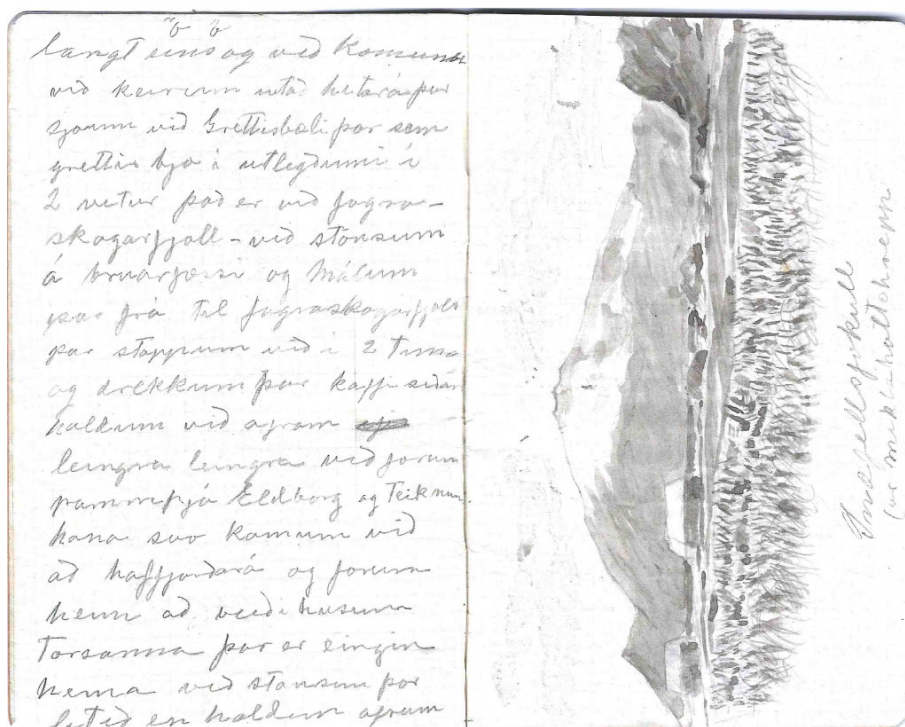 ö ö
langt eins og við komunn
við keirum utað hitará þar
sjáum við Grettisbæli þar sem
grettir bjó i utlegdumi i
2 vetur það er við fagra-
skogarfjall - við stonsum
á bruarfossi og Málum
þar frá til fagraskogarfjalls
þar stoppum við i 2 Tima
og drekkum þar kaffi siðan
haldum við afram
leingra leingra við forum
frammhjá Eldborg og Teiknum
hana svo komum við
að haffjardará og forum
heim að veidihusunum
Torsanna þar er eingin
heima við stonsum þar
litið en haldum afram
Snæfellsjökull
(ur miklaholtshreppi